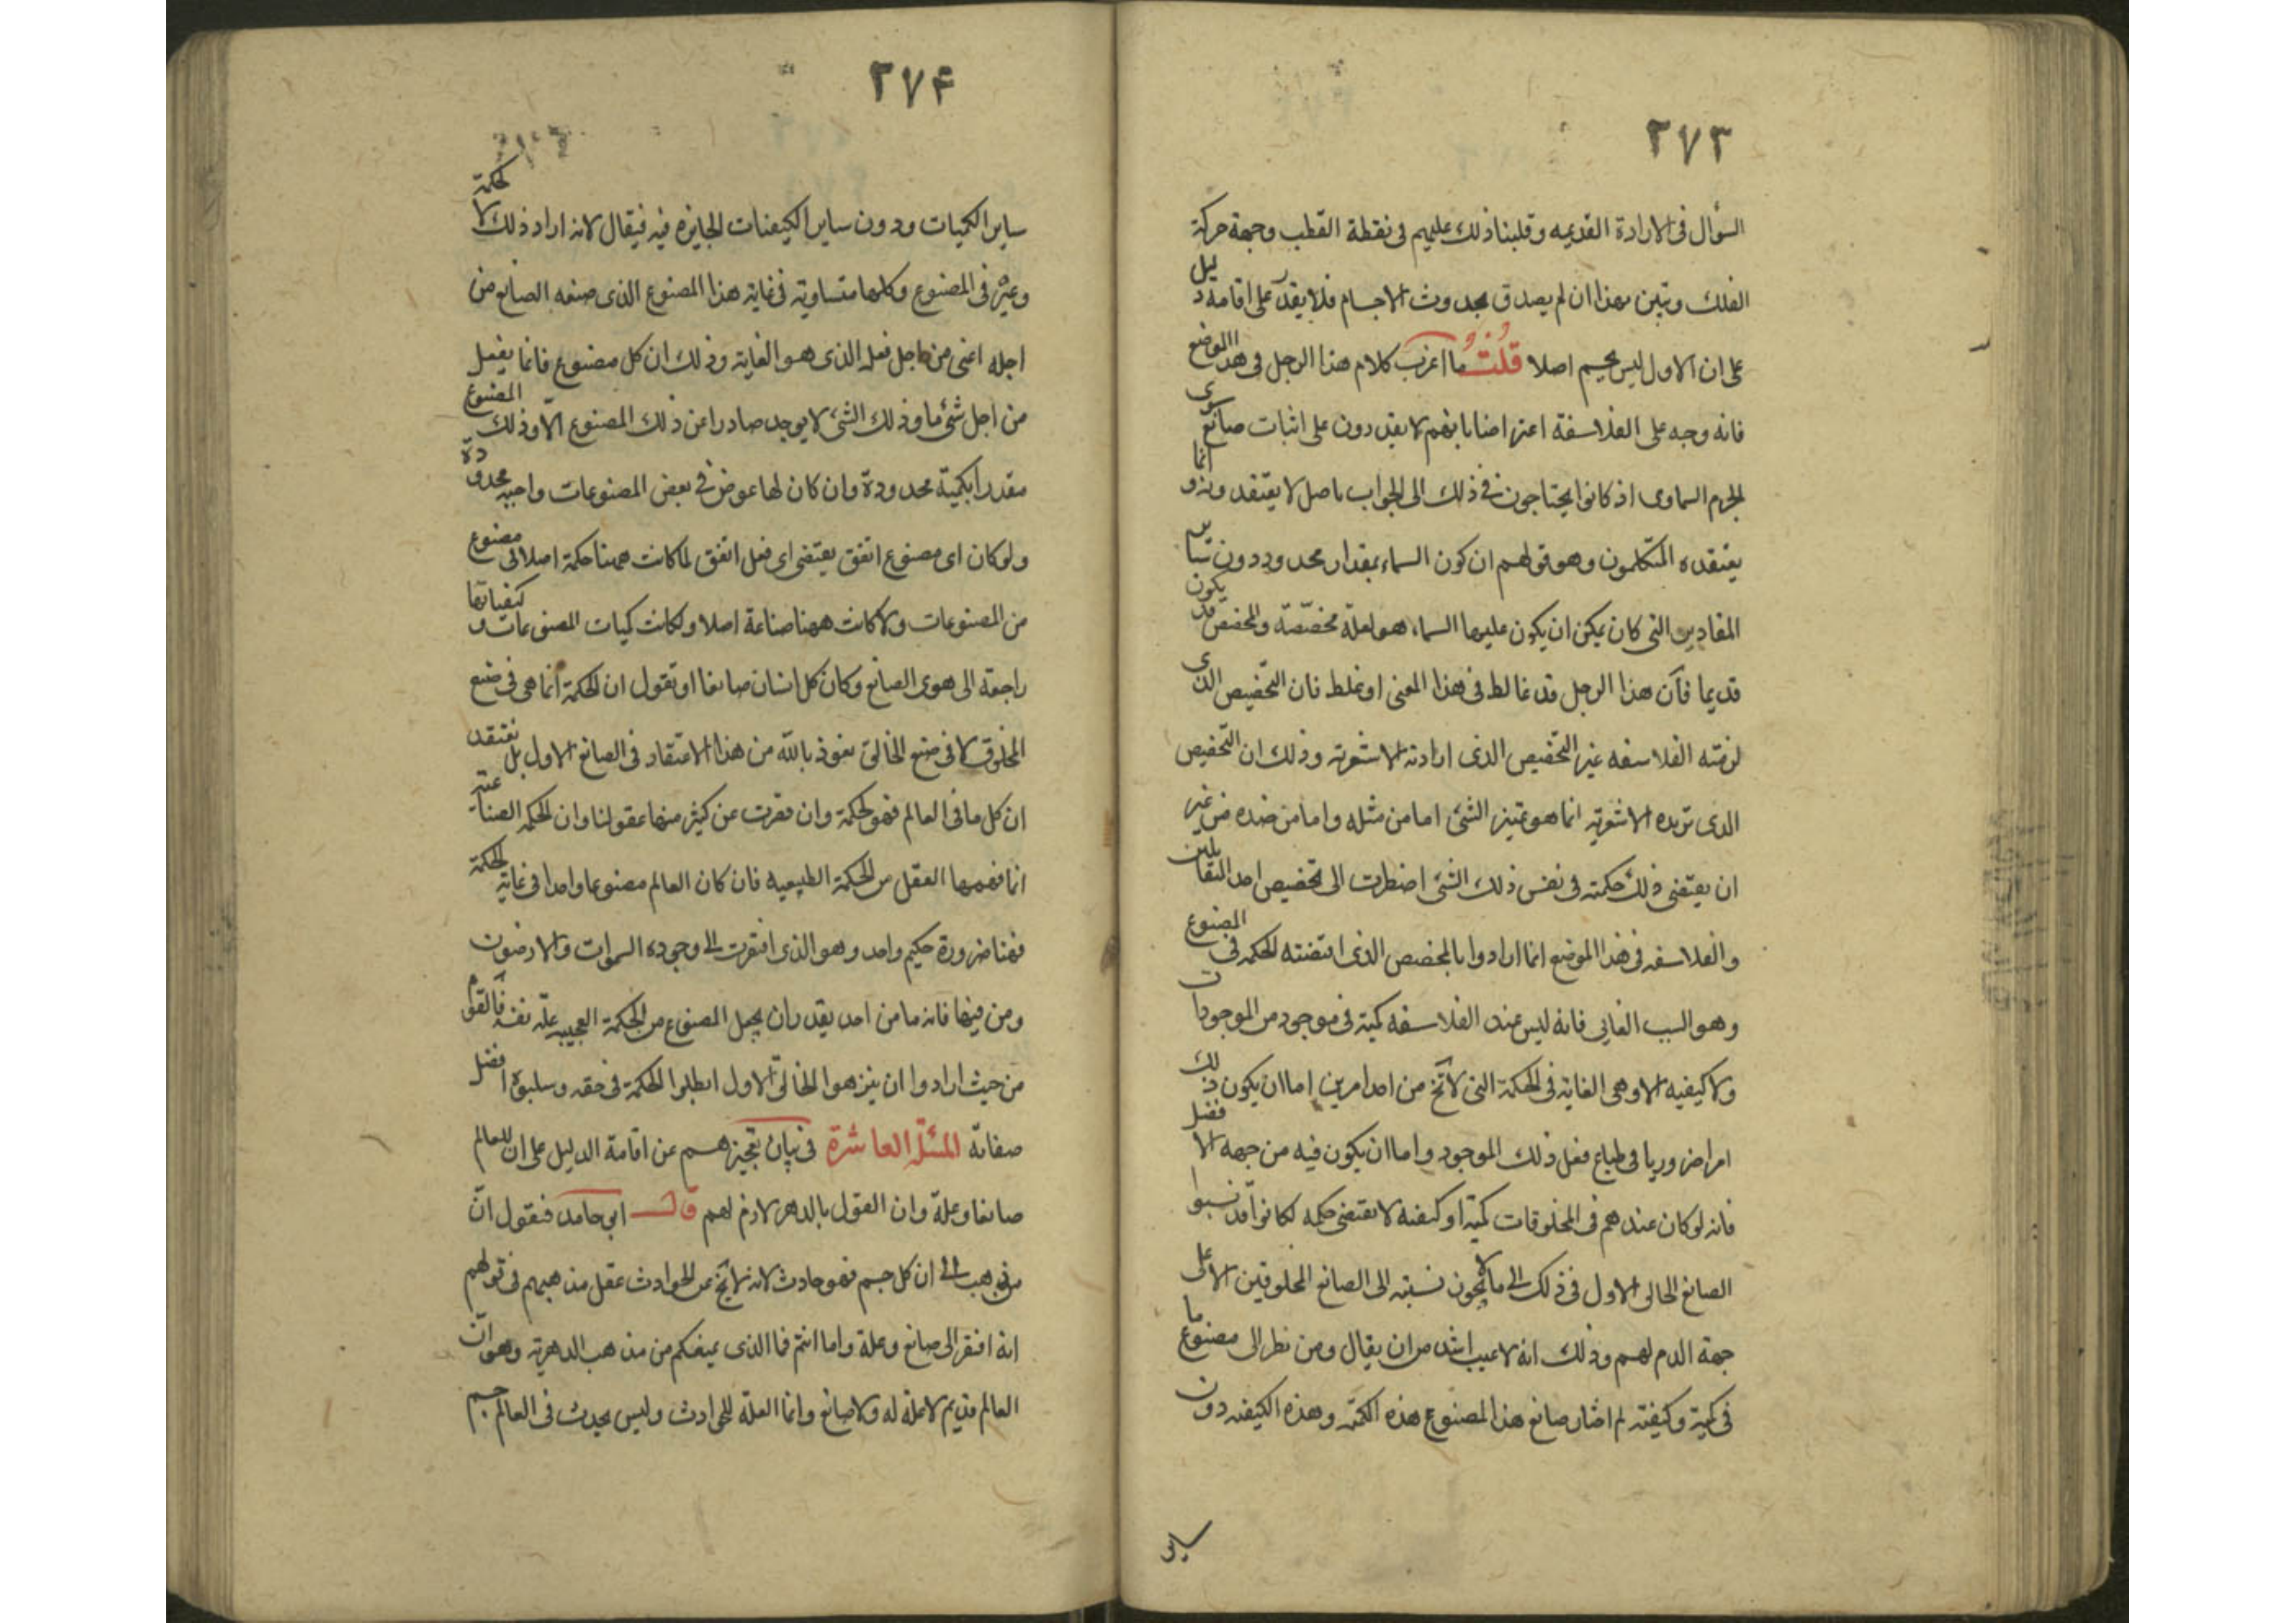 ٢٧٣
السؤال فى الارادة القديمه وقلبنا ذلك عليهم فى نقطة القطب وجهة حركة
الفلك وتبين بهذا ان لم يصدق بحدوث الاجسام فلا يقدر على اقامة دليل
على ان الاول ليس بجسم اصلا قلت ما اغرب كلام هذا الرجل فى هذا الموضع
فانه وجه على الفلاسفة اعتراضا بانهم لا يقدرون على اثبات صانع سوى
الجرم السماوى اذ كانوا يحتاجون فى ذلك الى الجواب باصل لا يعتقدونه وانما
يعتقده المتكلمون وهو قولهم ان كون السماء بمقدار محدود دون ساير
المقادير التى كان يمكن ان يكون عليها السماء هو لعلة مخصّصة والمخصص قد يكون
قديما فان هذا الرجل قد غالط فى هذا المعنى او غلط فان التخصيص الذى
لزمته الفلاسفه غير التخصيص الذى ارادته الاشعرية وذلك ان التخصيص
الذى تريده الاشعرية انما هو تميز الشئ اما من مثله واما من ضده من غير
ان يقتضى ذلك حكمة فى نفس ذلك الشئ اضطرت الى تخصيص احد المتقابلين
والفلاسفه فى هذا الموضع انما ارادوا بالمخصص الذى اقتضته الحكمه فى المصنوع
وهو السبب الغايى فانه ليس عند الفلاسفه كمية فى موجود من الموجودات
ولا كيفيه الا وهى الغاية فى الحكمة التى لا تخ من احد امرين اما ان يكون ذلك
امرا ضروريا فى طباع فعل ذلك الموجود واما ان يكون فيه من جهة الافضل
فانه لو كان عندهم فى المخلوقات كمية او كيفية لا تقتضى حكمه لكانوا قد نسبوا
الصانع الخالق الاول فى ذلك الى ما لا يجوز نسبته الى الصانع المخلوقين الا على
جهة الذم لهم وذلك انه لا عيب اشد من ان يقال ومن نظر الى مصنوع ما
فى كمية وكيفية لم اختار صانع هذا المصنوع هذه الكمية وهذه الكيفيه دون
ساير
٢٧۴
ساير الكميات ودون ساير الكيفيات الجايزه فيه فيقال لانه اراد ذلك لا لحكمة
وغيره فى المصنوع وكلها متساوية فى غاية هذا المصنوع الذى صنعه الصانع من
اجله اعنى من اجل فعله الذى هو الغاية وذلك ان كل مصنوع فانما يفعل
من اجل شئ ما وذلك الشئ لا يوجد صادرا عن ذلك المصنوع الّا وذلك المصنوع
مقدرا بكمية محدودة وان كان لها عرض فى بعض المصنوعات واجبه محدودة
ولو كان اى مصنوع اتفق يقتضى اى فعل اتفق لما كانت ههنا حكمة اصلا فى مصنوع
من المصنوعات ولا كانت ههنا صناعة اصلا ولكانت كميات المصنوعات وكيفياتها
راجعة الى هوى الصانع وكان كل انسان صانعا او نقول ان الحكمة انما هى فى صنع
المخلوق لا فى صنع الخالق نعوذ بالله من هذا الاعتقاد فى الصانع الاول بل نعتقد
ان كل ما فى العالم فهو لحكمة وان قصرت عن كثير منها عقولنا وان الحكمه الصناعية
انما فهمها العقل من الحكمة الطبيعيه فان كان العالم مصنوعا واحدا فى غاية الحكمة
فهنا ضرورة حكيم واحد وهو الذى افتقرت الى وجوده السموات والارضون
ومن فيها فانه ما من احد يقدر ان يجعل المصنوع من الحكمة العجيبه علّة نفسه فالقوم
من حيث ارادوا ان ينزهوا الخالق الاول ابطلوا الحكمة فى حقه وسلبوه افضل
صفاته المسئلة العاشرة فى بيان تعجيزهم عن اقامة الدليل على ان للعالم
صانعا وعلة وان القول بالدهر لازم لهم قال ابو حامد فنقول انّ
من ذهب الى ان كل جسم فهو حادث لانه لا يخ عن الحوادث عقل مذهبهم فى قولهم
انه افتقر الى صانع وعلة واما انتم فما الذى يمنعكم من مذهب الدهرية وهو انّ
العالم قديم لا علة له ولا صانع وانما العلة للحوادث وليس يحدث فى العالم جسم